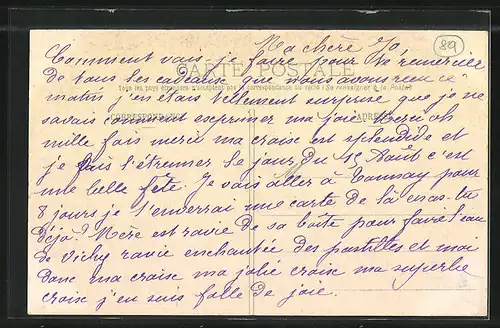 Ma chère Jo
89
Comment vais je faire pour te remercier
CARTE POSTALE
de tous les cadeaux que nous avons reçu ce
Tous les pays étrangers n'acceptent pas la correspondance au recto (Se renseigner à la Poste)
matin j'en étais tellement surprise que je ne
savais comment exprimer ma joie Merci oh
CORRESPONDANCE
ADRESSE
mille fois merci ma croise est splendide et
je vais l'étrenner le jour du 15 Août c'est
une belle fête. Je vais aller à Tannay pour
8 jours je t'enverrai une carte de là en as-tu
déjà? Mère est ravie de sa boîte pour faire l'eau
de Vichy ravie enchantée des pastilles et moi
donc ma croise ma jolie croise ma superbe
croise j'en suis folle de joie.